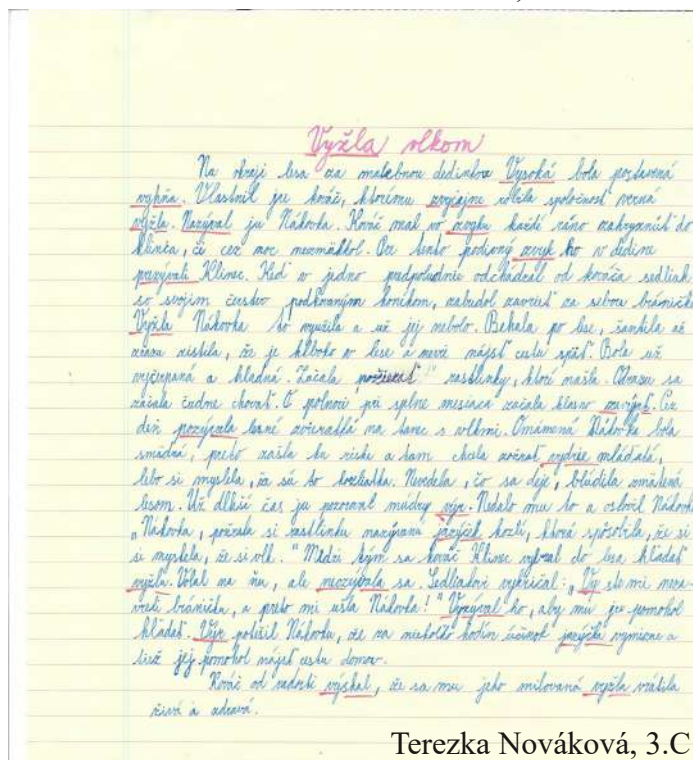 Vyžla vlkom
Na okraji lesa za malebnou dedinkou Vysoká bola postavená
vyhňa. Vlastnil ju kováč, ktorému zvyčajne robila spoločnosť verná
vyžla. Nazýval ju Nákovka. Kováč mal vo zvyku každé ráno zahryznúť do
klinca, či cez noc nezmäkkol. Pre tento podivný zvyk ho v dedine
prezývali Klinec. Keď v jedno predpoludnie odchádzal od kováča sedliak
so svojim čerstvo podkovaným koníkom, zabudol zavrieť za sebou bráničk
Vyžla Nákovka to využila a už jej nebolo. Behala po lese, šantila až
zrazu zistila, že je hlboko v lese a nevie nájsť cestu späť. Bola už
vyčerpaná a hladná. Začala požierať rastlinky, ktoré našla. Odrazu sa
začala čudne chovať. O polnoci pri splne mesiaca začala hlasno zavýjať. Cez
deň pozývala lesné zvieratká na tanec s vlkmi. Omámená Nákovka bola
smädná, preto zašla ku riške a tam chcela zožrať vydrie mláďatá,
lebo si myslela, že sú to kozliatka. Nevedela, čo sa deje, blúdila zmätená
lesom. Už dlhší čas ju pozoroval múdry výr. Nedalo mu to a oslovil Nákovk
„Nákovka, požrala si rastlinku nazývanú jazýček kozlí, ktorá spôsobila, že si
si myslela, že si vlk." Medzi tým sa kováč Klinec vybral do lesa hľadať
vyžlu. Volal na ňu, ale neozývala sa. Sedliakovi vykričal: „Vy ste mi neza-
vreli bráničku, a preto mi ušla Nákovka!" Vyzýval ho, aby mu ju pomohol
hľadať. Výr potešil Nákovku, že za niekoľko hodín účinok jazýčka vymizne a
tiež jej pomohol nájsť cestu domov.
Kováč od radosti výskal, že sa mu jeho milovaná vyžla vrátila
živá a zdravá.
Terezka Nováková, 3.C